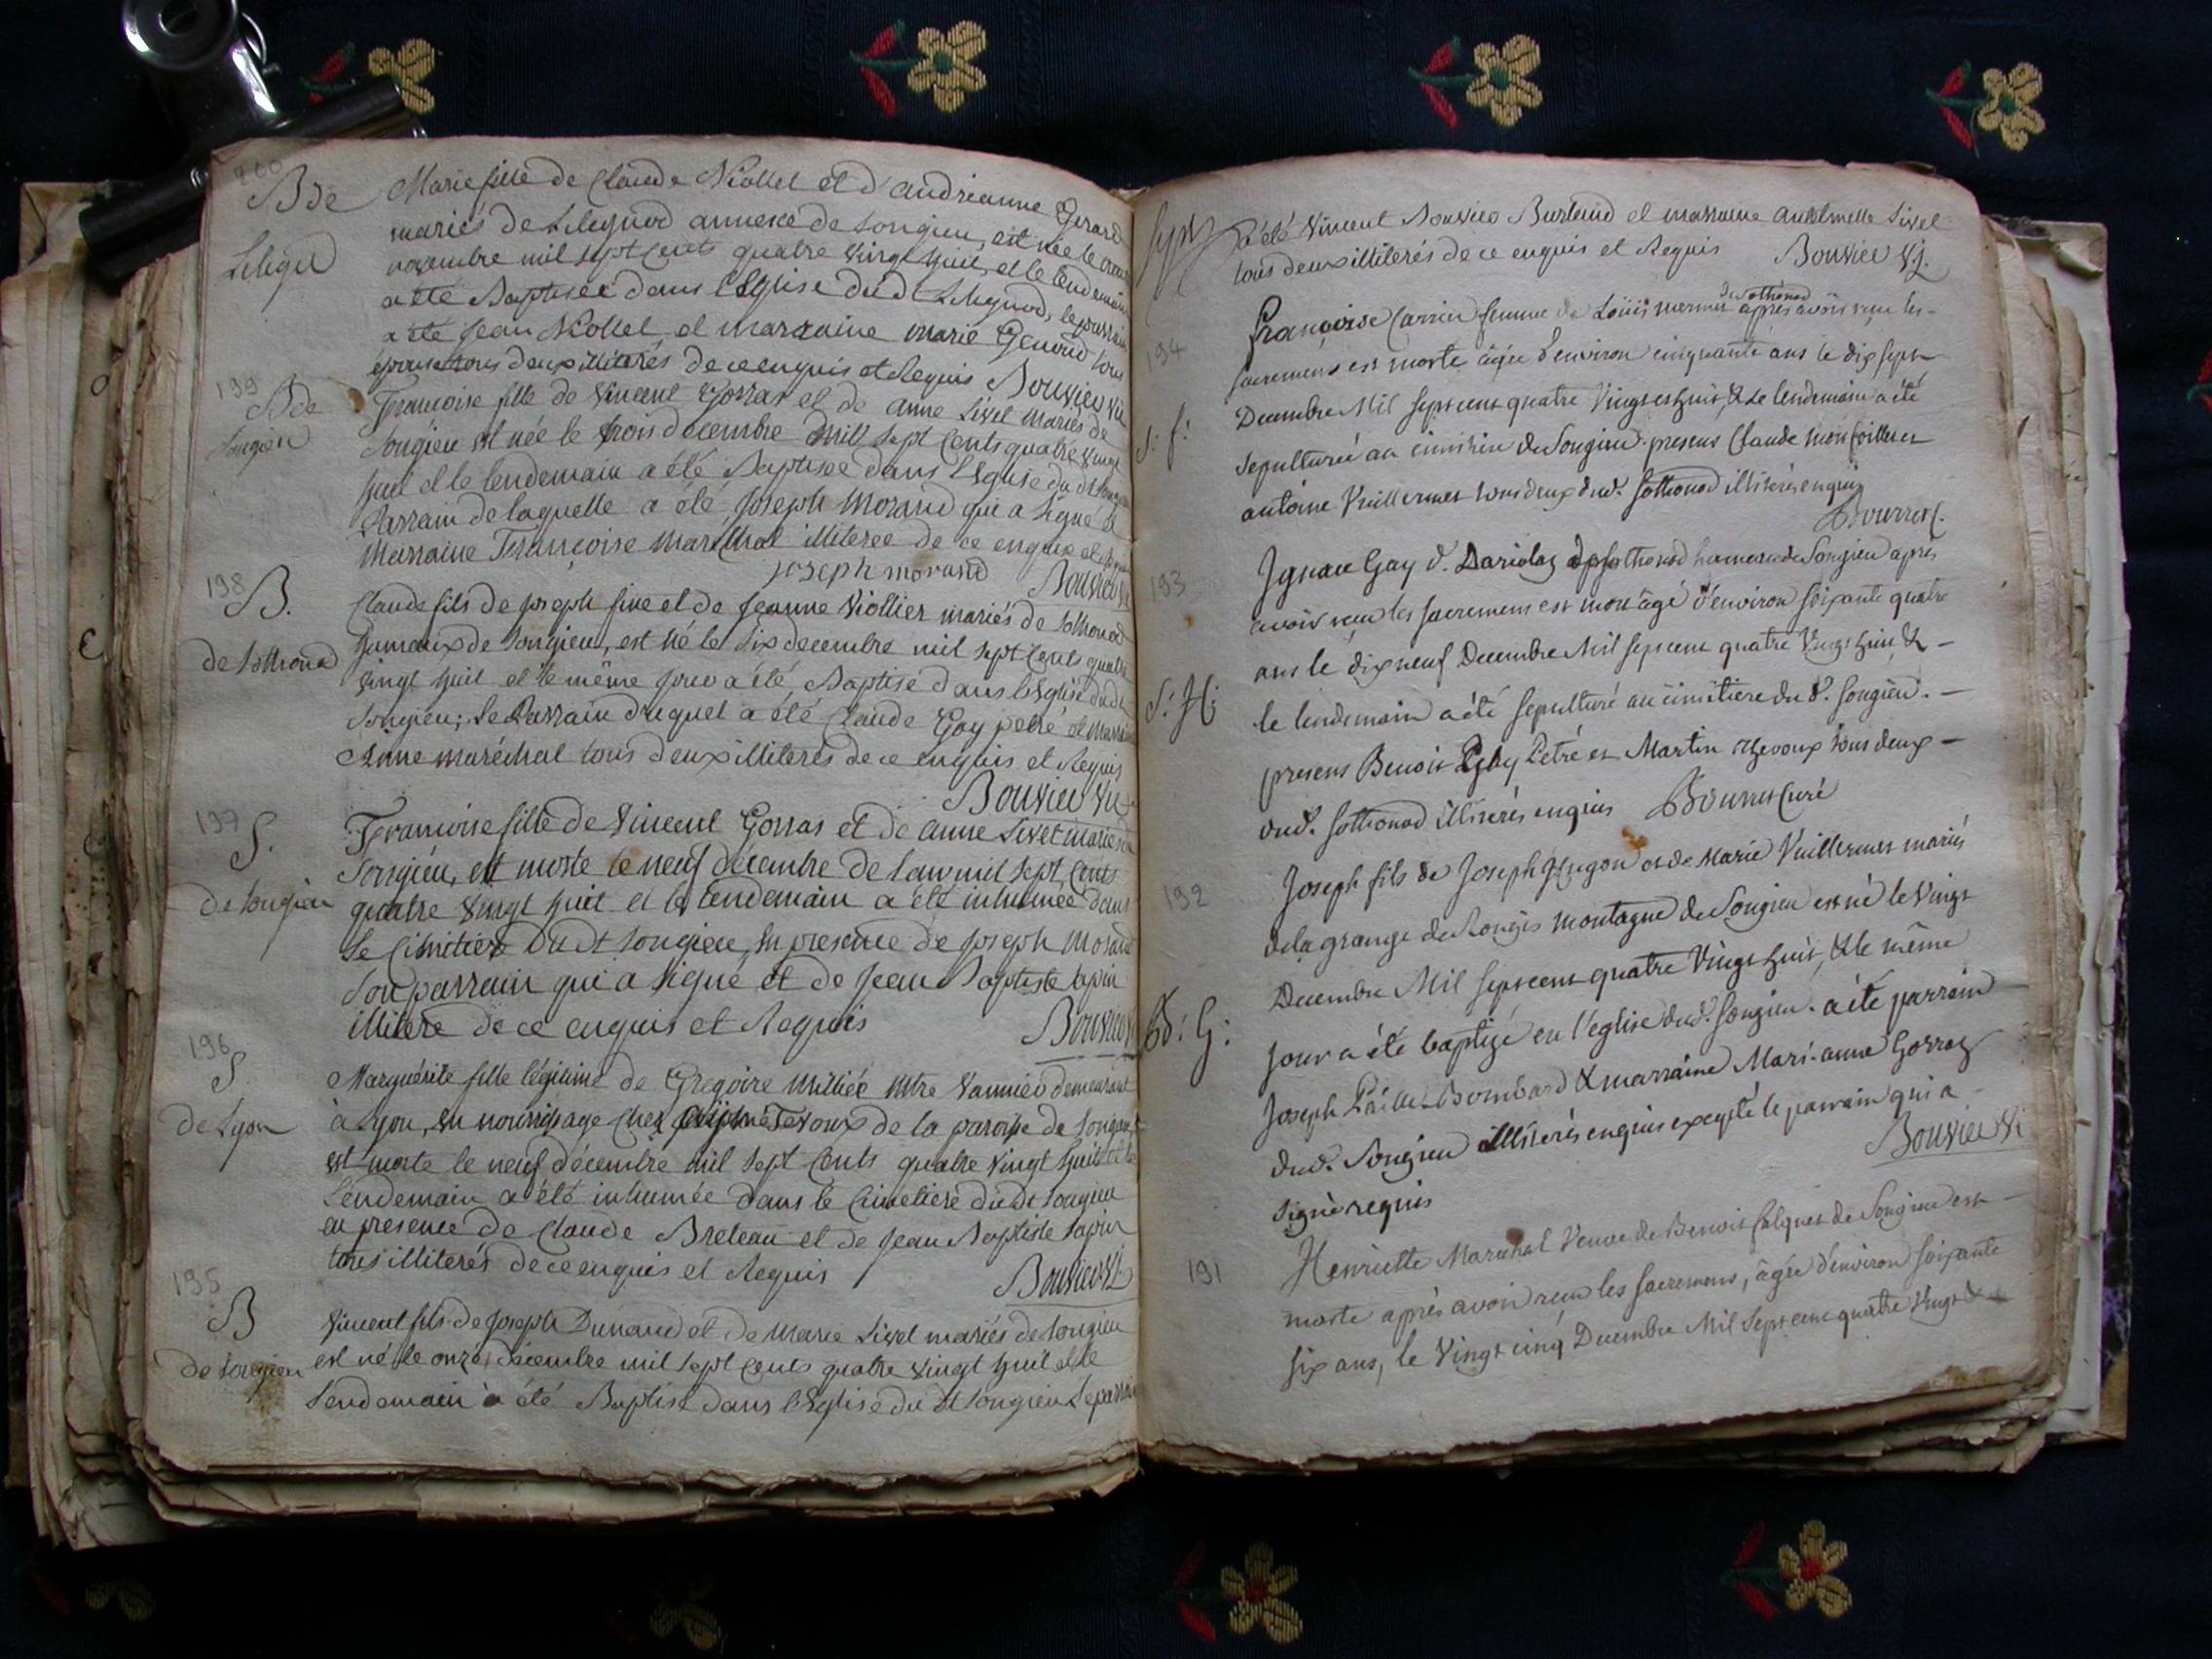 200
B de Marie fille de Claude Niollet et d'andrianne Gerard
Lilignod mariés de Lilignod annexe de Songieu, est née le
novembre mil sept Cents quatre vingt huit, et le lendemain
a été Baptisée dans l'Eglise dudt Lilignod, le parrain
a été Jean Niollet et marraine marie Genoud sous
épouse tous deux illiterés de ce enquis et Requis Bouvier vic
199
B de Francoise fille de Vincent Gorras et de anne Livet mariés de
Songieu Songieu est née le trois decembre mil sept Cents quatre vingt
huit et le lendemain a été Baptisée dans l'Eglise du dt Songieu
Parrain de laquelle a été Joseph Morand qui a signé et
Marraine Françoise Maréchal illiterée de ce enquise et Requise
joseph morand Bouvier vi
198
B. Claude fils de joseph fine et de jeanne Viollier mariés de Sothonod
hameaux de Songieu, est né le six decembre mil sept Cents quatre
de Sothonod vingt huit et le même jour a été Baptisé dans l'Eglise dudt
Songieu; Le Parrain duquel a été Claude Gay petré et marraine
Anne maréchal tous deux illiterés de ce enquis et Requis
Bouvier vic
197
S. Francoise fille de Vincent Gorras et de anne Livet mariés de
Songieu, est morte le neuf décembre de l'an mil sept Cents
de Songieu quatre vingt huit et le lendemain a été inhumée dans
Le Cimetiere Dudt Songieu, En presence de joseph Morand
Son parrain qui a signé et de jean Baptiste Sapin
illiteré de ce enquis et Requis Bouvier v
196
S Marguerite fille légitime de Gregoire Milliée mtre Vannier demeurant
de Lyon à Lyon, en nourrissage chez Tevoux de la paroisse de Songieu
est morte le neuf décembre mil sept Cents quatre vingt huit et le
Lendemain a été inhumée dans le Cimetiere dudt Songieu
en presence de Claude Breteau et de jean Baptiste Sapin
tous illiterés de ce enquis et Requis Bouvier vi
195
B Vincent fils de joseph Dunand et de Marie Livet mariés de Songieu
de Songieu est né le onze décembre mil sept Cents quatre vingt huit et le
Lendemain a été Baptisé dans l'Eglise du dt Songieu Le parrain
a été Vincent Bouvier Burland et marraine antelmette Livet
tous deux illiterés de ce enquis et Requis Bouvier vi.
194
du sothonod
françoise Carrier femme de Loüis mermet après avoir reçu les
sacremens est morte âgée d'environ cinquante ans le dix sept
Decembre Mil sept cent quatre Vingt et huit, & Le lendemain a été
S: f: sepulturée au cimitiere de Songieu. presens Claude Monfoillet et
antoine Vuillermet tous deux dud. sothonod illiterés enquis
Bourret C.
193
Ignace Gay d. Dariolaz de sothonod hameau de Songieu après
avoir reçu les sacremens est mort âgé d'environ soixante quatre
ans le dix neuf Decembre Mil sept cent quatre Vingt huit &
S: H: le lendemain a été sepulturé au cimitiere du d. Songieu.
presens Benoit Gay Petré et Martin Thevoux tous deux
dud. sothonod illiterés enquis Bourret Curé
192
Joseph fils de Joseph Hugon et de Marie Vuillermet mariés
de la grange de Ronges montagne de Songieu est né le Vingt
Decembre Mil sept cent quatre Vingt huit, & le même
Bd: G: jour a été baptizé en l'eglise dud. Songieu. a été parrain
Joseph Paillet Bombard & marraine Mari-anne Gorraz
dud. Songieu illiterés enquis excepté le parrain qui a
signé requis Bouvier vi
191
Henriette Maréchal Veuve de Benoit falquet de Songieu est
morte après avoir reçu les sacremens, âgée d'environ soixante
six ans, le Vingt cinq Decembre Mil Sept cent quatre Vingt &